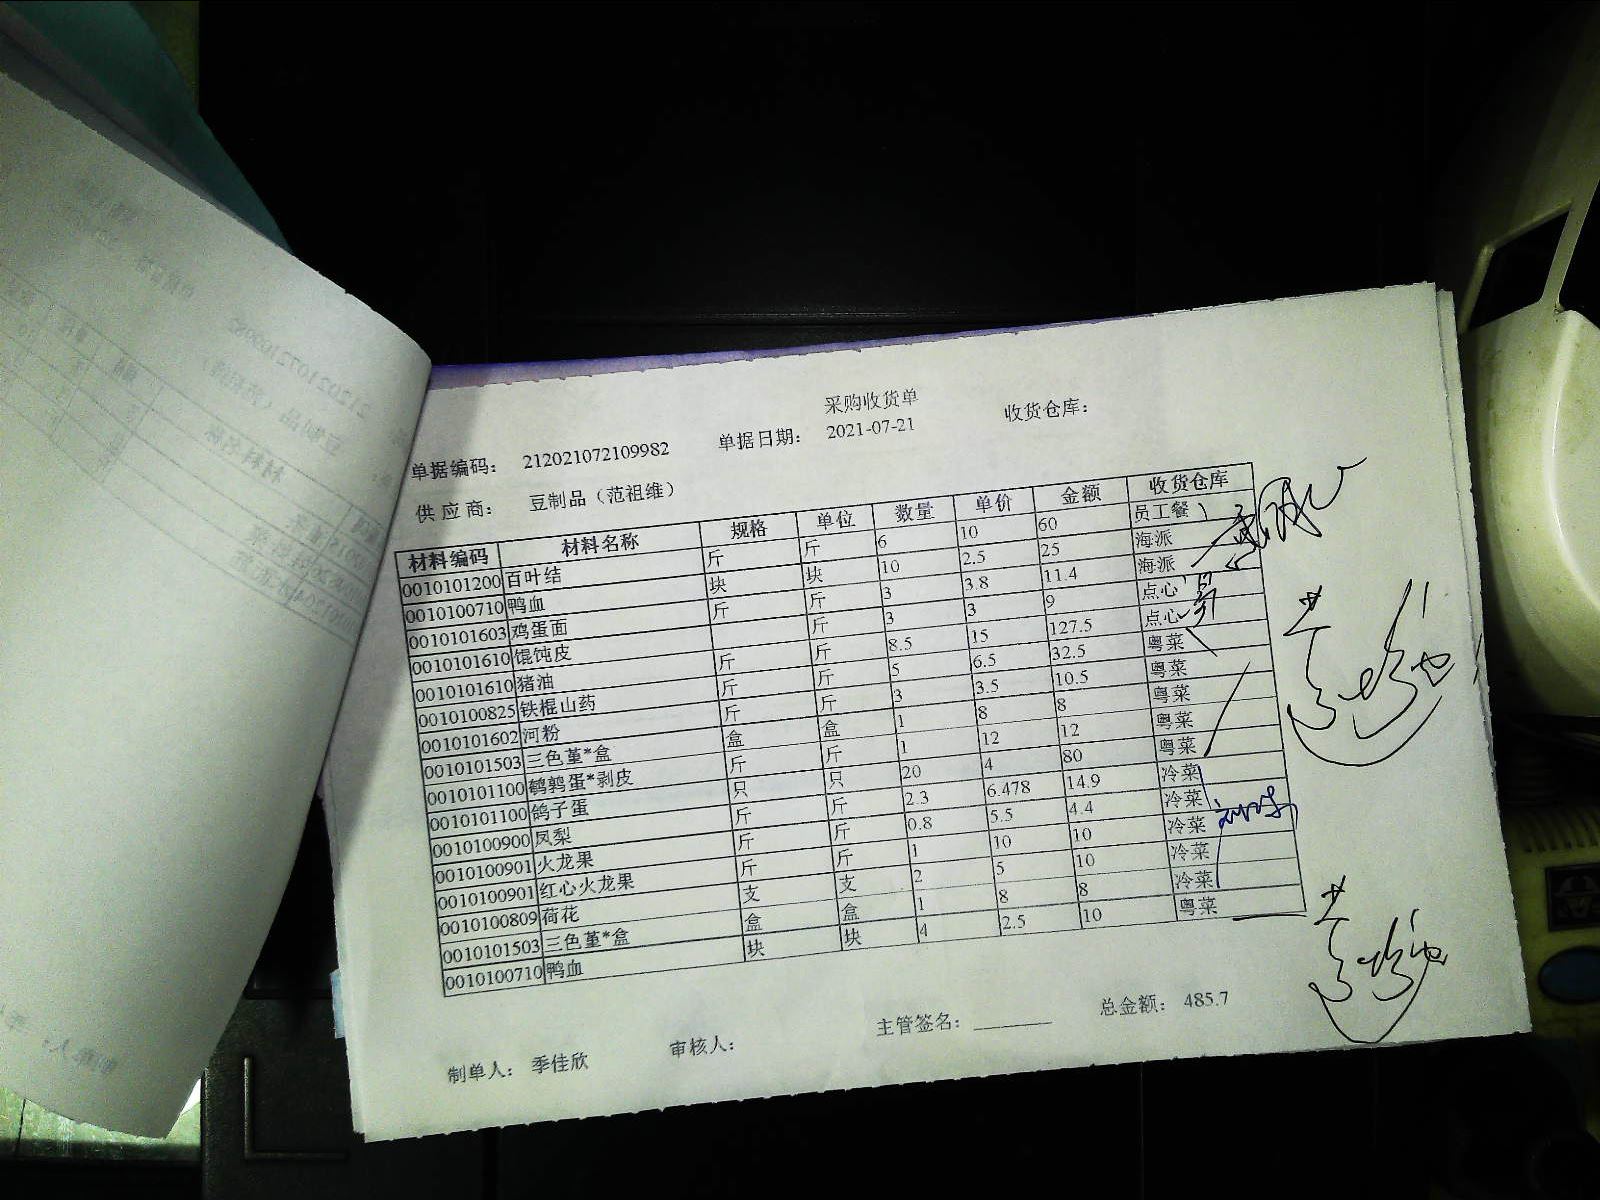 采购收货单
单据编码： 212021072109982 单据日期： 2021-07-21 收货仓库：
供应商： 豆制品（范祖维）
材料编码 材料名称 规格 单位 数量 单价 金额 收货仓库
0010101200 百叶结 斤 斤 6 10 60 员工餐
0010100710 鸭血 块 块 10 2.5 25 海派
0010101603 鸡蛋面 斤 斤 3 3.8 11.4 海派
0010101610 馄饨皮 斤 3 3 9 点心
0010101610 猪油 斤 斤 8.5 15 127.5 点心
0010100825 铁棍山药 斤 斤 5 6.5 32.5 粤菜
0010101602 河粉 斤 斤 3 3.5 10.5 粤菜
0010101503 三色堇*盒 盒 盒 1 8 8 粤菜
0010101100 鹌鹑蛋*剥皮 斤 斤 1 12 12 粤菜
0010101100 鸽子蛋 只 只 20 4 80 粤菜
0010100900 凤梨 斤 斤 2.3 6.478 14.9 冷菜
0010100901 火龙果 斤 斤 0.8 5.5 4.4 冷菜
0010100901 红心火龙果 斤 斤 1 10 10 冷菜
0010100809 荷花 支 支 2 5 10 冷菜
0010101503 三色堇*盒 盒 盒 1 8 8 冷菜
0010100710 鸭血 块 块 4 2.5 10 粤菜
制单人： 季佳欣 审核人： 主管签名： 总金额： 485.7